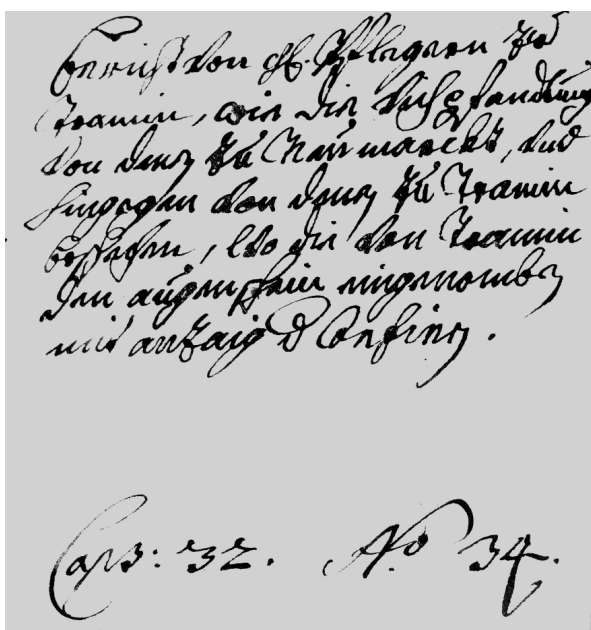 Bericht von H. Pflegern zu
Tramin, wie die Vichpfandtung
von denen zu Neumarckt, vnd
hingegen von denen zu Tramin
beschehen, wo die von Tramin
den augenschein eingenomben
mit antzaig d Confinen.
Caps: 32. No. 34.